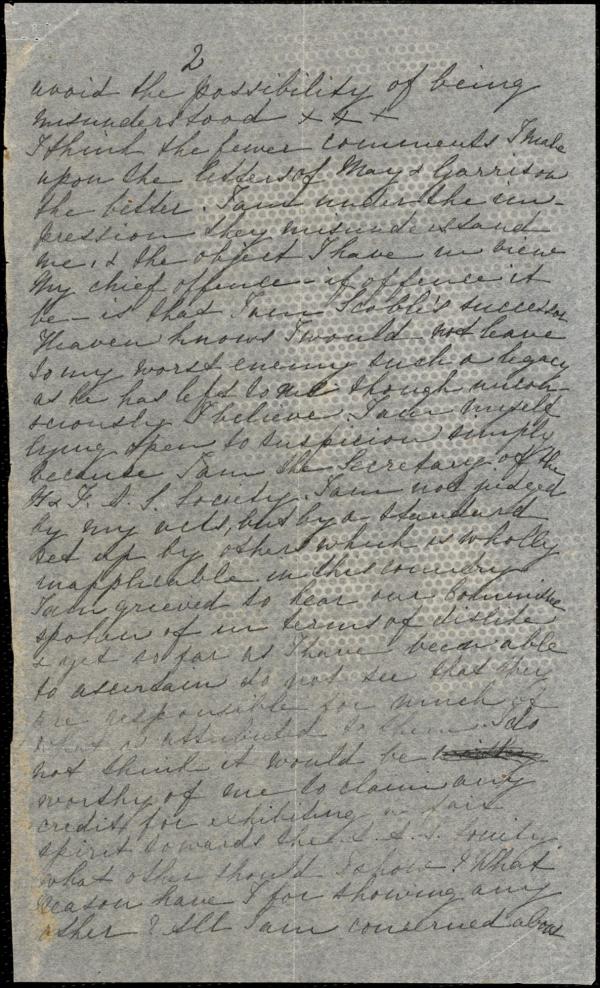 2
avoid the possibility of being
misunderstood x x x
I think the fewer comments I make
upon the letters of May & Garrison
the better. I am under the im-
pression they misunderstand
me, & the object I have in view
My chief offence – if offence it
be – is that I am Scoble's successor
Heaven knows I would not leave
to my worst enemy such a legacy
as he has left to me though uncon-
sciously I believe. I am myself
lying open to suspicion simply
because I am the Secretary of the
B & F. A. S. Society. I am not judged
by my acts, but by a standard
set up by others which is wholly
inapplicable in this country
I am grieved to hear our Committee
spoken of in terms of dislike
& yet so far as I have been able
to ascertain do not see that they
are responsible for much of
what is attributed to them. I do
not think it would be
worthy of me to claim any
credit for exhibiting a fair
spirit towards the A. A. S. Society
what other should I show? What
reason have I for showing any
other? All I am concerned about